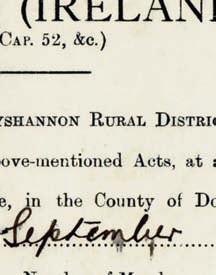 (IRELAND
CAP. 52, &c.)
YSHANNON RURAL DISTRIC
ove-mentioned Acts, at a
e, in the County of Do
September